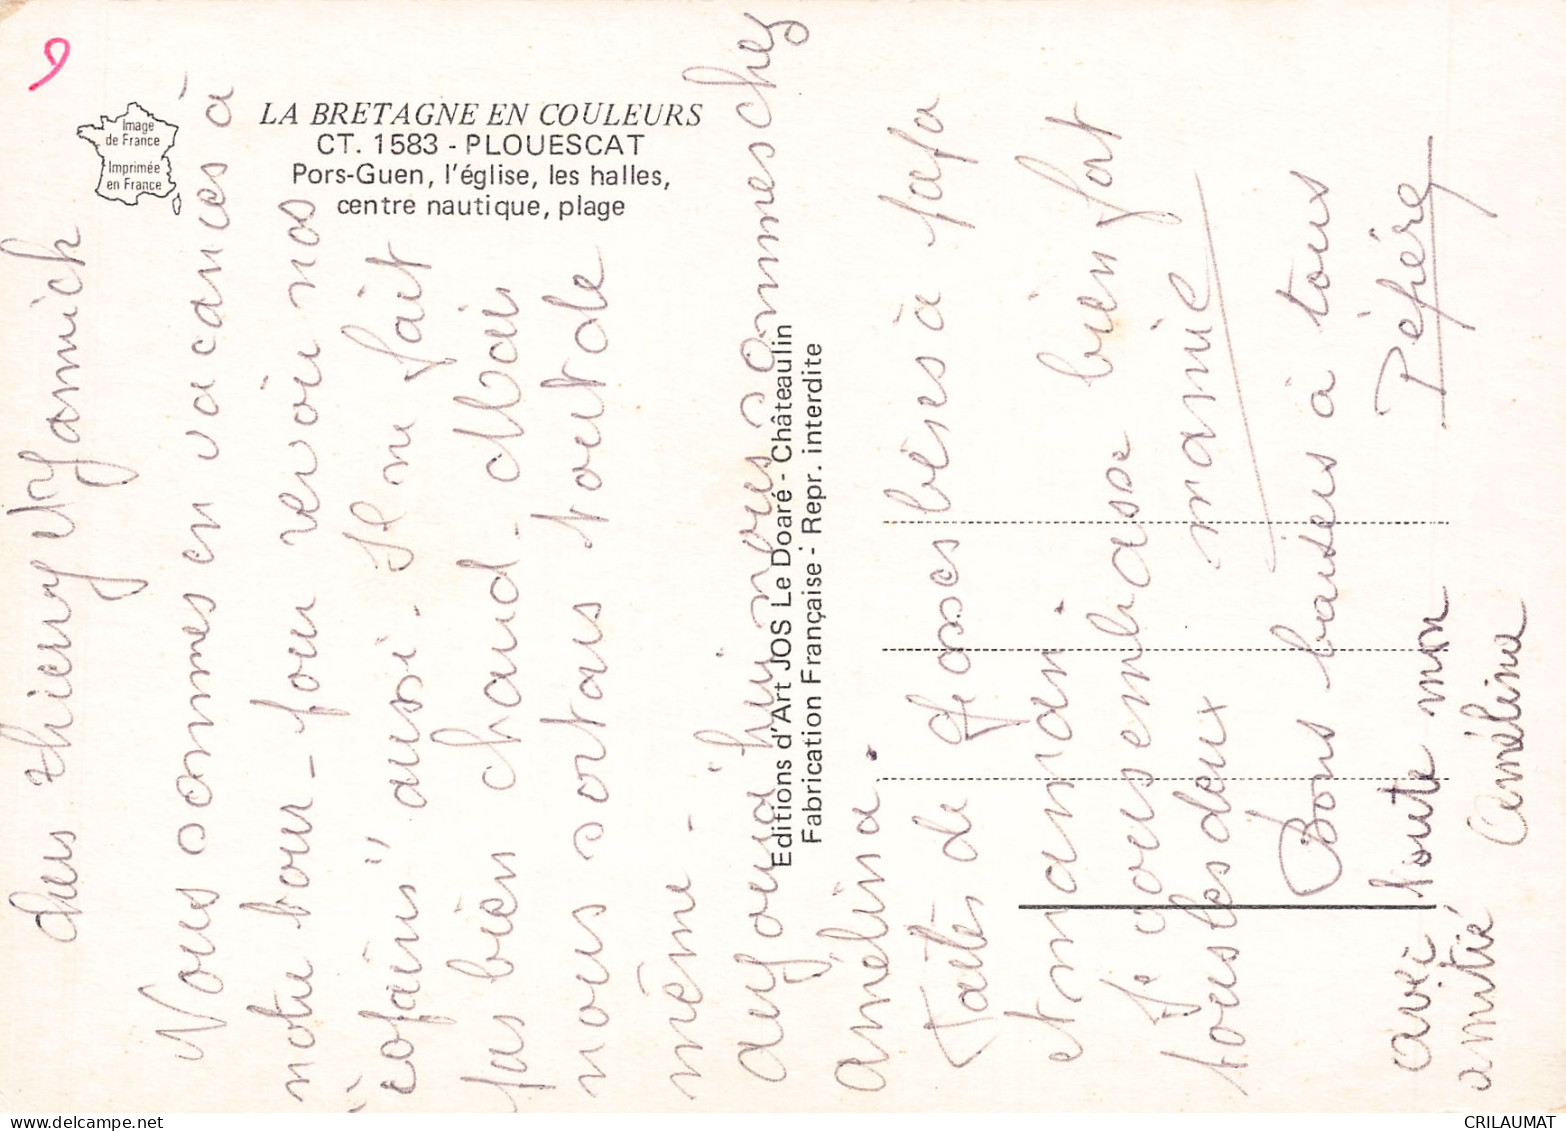 9
Image
de France
Imprimée
en France
LA BRETAGNE EN COULEURS
CT. 1583 - PLOUESCAT
Pors-Guen, l'église, les halles,
centre nautique, plage
Editions d'Art JOS Le Doaré - Châteaulin
Fabrication Française - Repr. interdite
chers thierry et yannick
Nous sommes en vacances à
notre tour - pour revoir nos
"copains" aussi. Il ne fait
pas bien chaud - Mais
nous sortons tout de
même -
aujourd'hui nous sommes chez
amelina.
Faites de grosses bises à papa
et maman.
Je vous embrasse bien fort
tous les deux mamie
Bons baisers à tous
Pépère
avec toute mon
amitié Amélina
CRILAUMAT